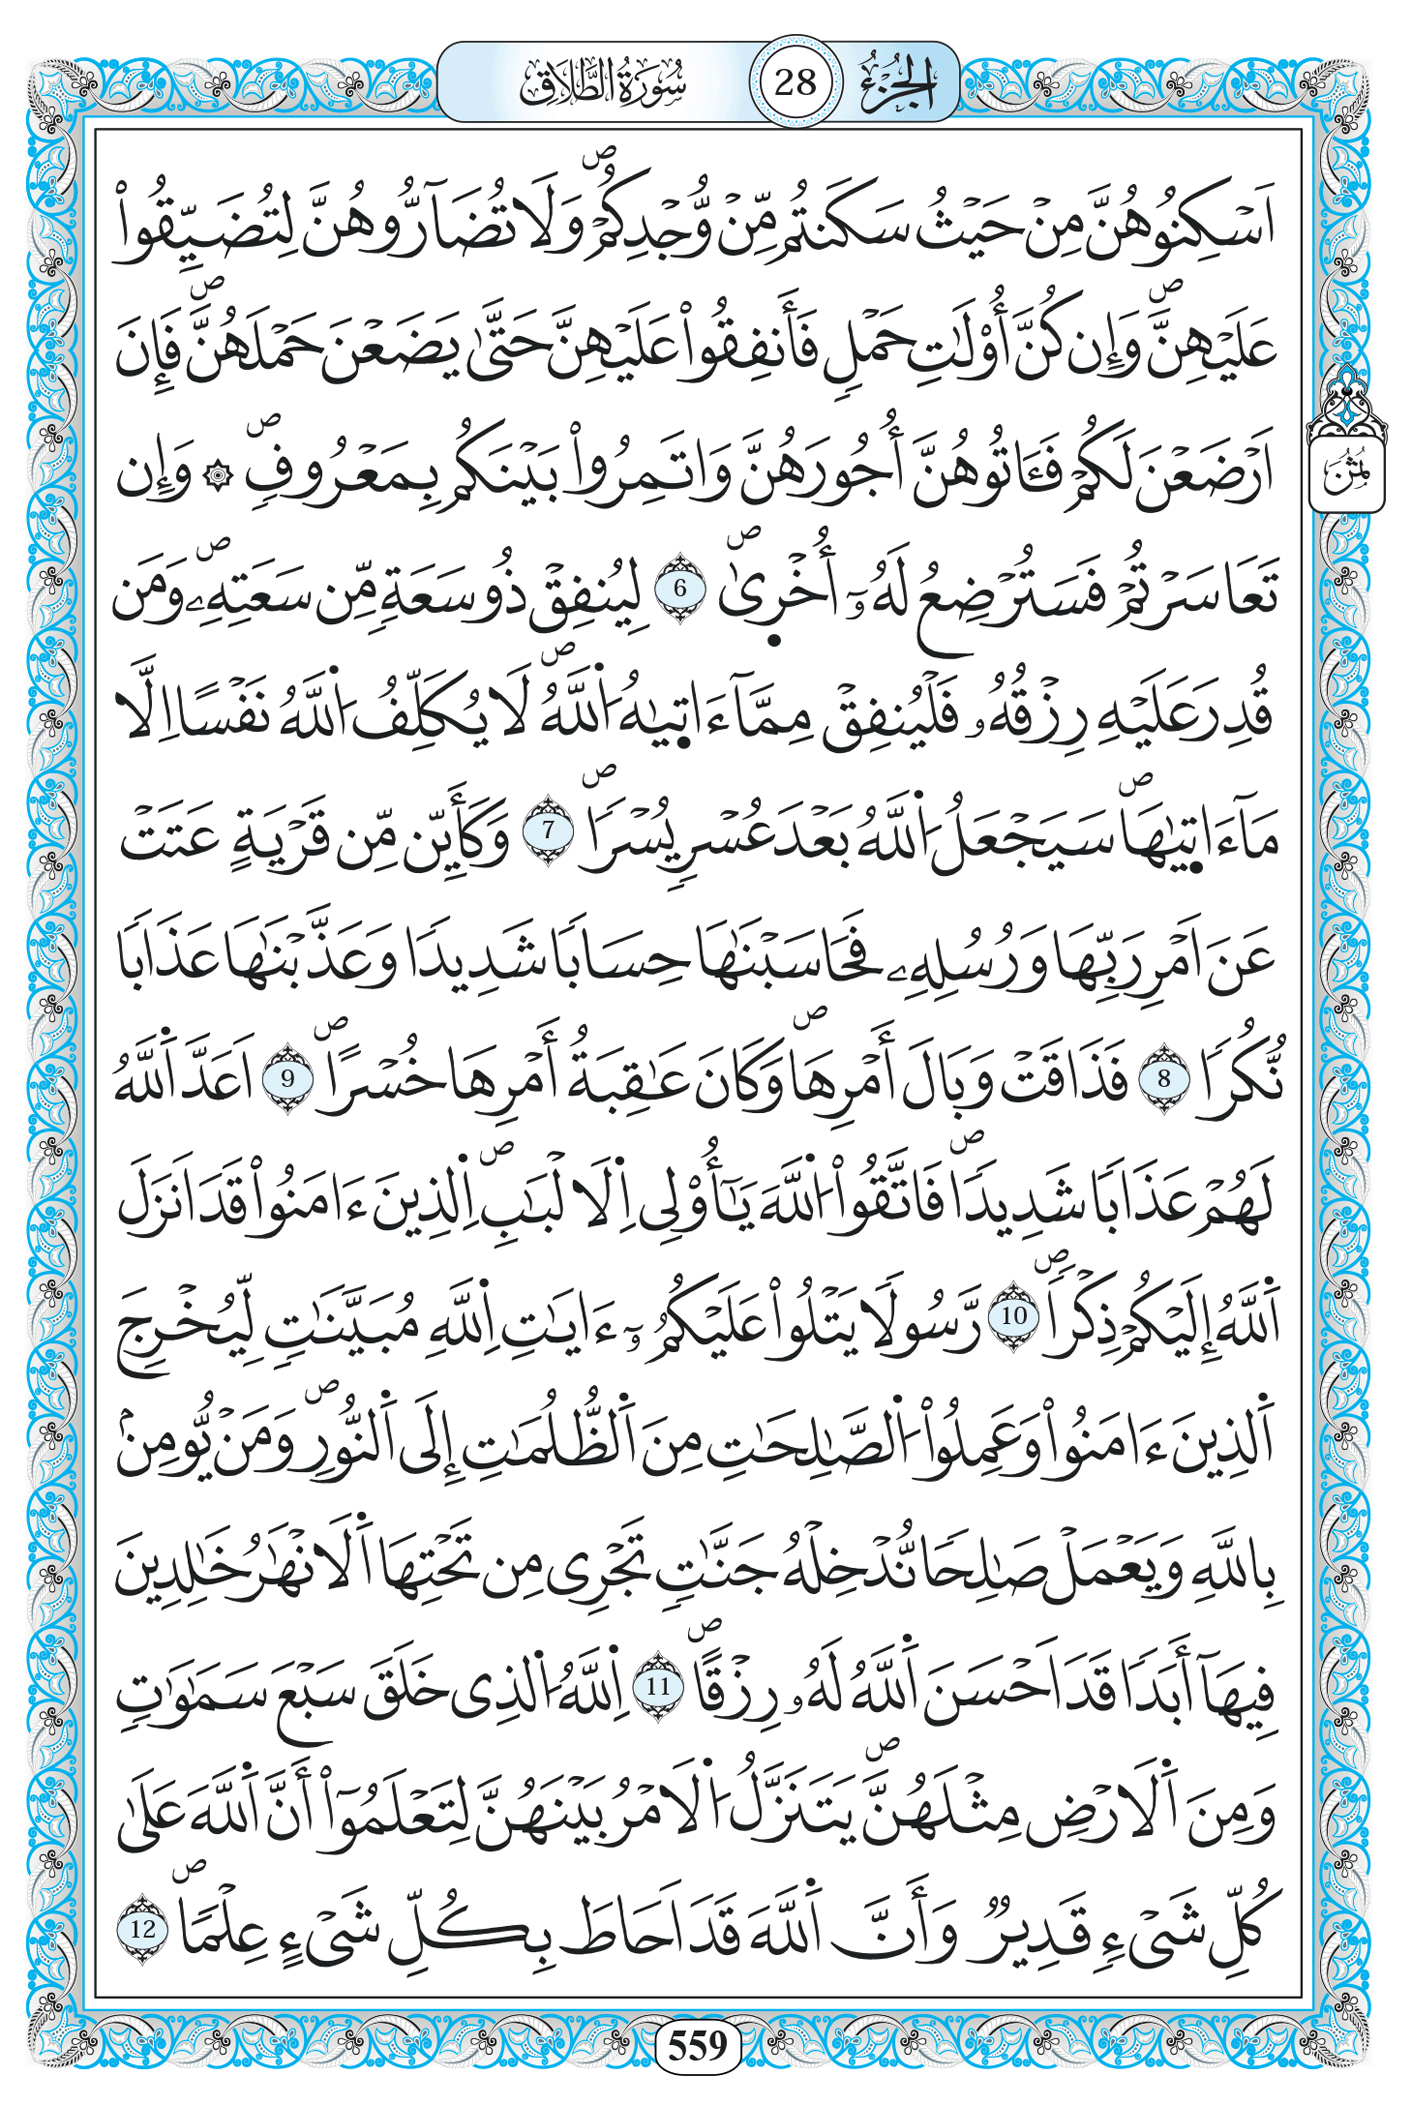 الجزء 28 سورة الطلاق
اَسْكِنُوهُنَّ مِنْ حَيْثُ سَكَنتُم مِّنْ وُّجْدِكُمْۖ وَلَا تُضَآرُّوهُنَّ لِتُضَيِّقُواْ
عَلَيْهِنَّۖ وَإِن كُنَّ أُوْلَٰتِ حَمْلٖ فَأَنفِقُواْ عَلَيْهِنَّ حَتَّىٰ يَضَعْنَ حَمْلَهُنَّۖ فَإِنَ
اَرْضَعْنَ لَكُمْ فَـَٔاتُوهُنَّ أُجُورَهُنَّ وَاتَمِرُواْ بَيْنَكُم بِمَعْرُوفٖۖ ۞ وَإِن
ثُمُن
تَعَاسَرْتُمْ فَسَتُرْضِعُ لَهُۥٓ أُخْر۪ىٰۖ 6 لِيُنفِقْ ذُو سَعَةٖ مِّن سَعَتِهِۦۖ وَمَن
قُدِرَ عَلَيْهِ رِزْقُهُۥ فَلْيُنفِقْ مِمَّآ ءَات۪يٰهُ اُ۬للَّهُۖ لَا يُكَلِّفُ اُ۬للَّهُ نَفْساً اِلَّا
مَآ ءَات۪يٰهَاۖ سَيَجْعَلُ اُ۬للَّهُ بَعْدَ عُسْرٖ يُسْراٗۖ 7 وَكَأَيِّن مِّن قَرْيَةٍ عَتَتْ
عَنَ اَمْرِ رَبِّهَا وَرُسُلِهِۦ فَحَاسَبْنَٰهَا حِسَاباٗ شَدِيداٗ وَعَذَّبْنَٰهَا عَذَاباٗ
نُّكُراٗ 8 فَذَاقَتْ وَبَالَ أَمْرِهَاۖ وَكَانَ عَٰقِبَةُ أَمْرِهَا خُسْراًۖ 9 اَعَدَّ اَ۬للَّهُ
لَهُمْ عَذَاباٗ شَدِيداٗۖ فَاتَّقُواْ اُ۬للَّهَ يَٰٓأُوْلِى اِ۬لَالْبَٰبِۖ اِ۬لذِينَ ءَامَنُواْ قَدَ اَنزَلَ
اَ۬للَّهُ إِلَيْكُمْ ذِكْراٗۖ 10 رَّسُولاٗ يَتْلُواْ عَلَيْكُمُۥٓ ءَايَٰتِ اِ۬للَّهِ مُبَيَّنَٰتٖ لِّيُخْرِجَ
اَ۬لذِينَ ءَامَنُواْ وَعَمِلُواْ اُ۬لصَّٰلِحَٰتِ مِنَ اَ۬لظُّلُمَٰتِ إِلَى اَ۬لنُّورِۖ وَمَنْ يُّومِنۢ
بِاللَّهِ وَيَعْمَلْ صَٰلِحاٗ نُّدْخِلْهُ جَنَّٰتٖ تَجْرِى مِن تَحْتِهَا اَ۬لَانْهَٰرُ خَٰلِدِينَ
فِيهَآ أَبَداٗ قَدَ اَحْسَنَ اَ۬للَّهُ لَهُۥ رِزْقاًۖ 11 اِ۬للَّهُ اُ۬لذِى خَلَقَ سَبْعَ سَمَٰوَٰتٖ
وَمِنَ اَ۬لَارْضِ مِثْلَهُنَّۖ يَتَنَزَّلُ اُ۬لَامْرُ بَيْنَهُنَّ لِتَعْلَمُوٓاْ أَنَّ اَ۬للَّهَ عَلَىٰ
كُلِّ شَىْءٖ قَدِيرٞ وَأَنَّ اَ۬للَّهَ قَدَ اَحَاطَ بِكُلِّ شَىْءٍ عِلْماٗۖ 12
559